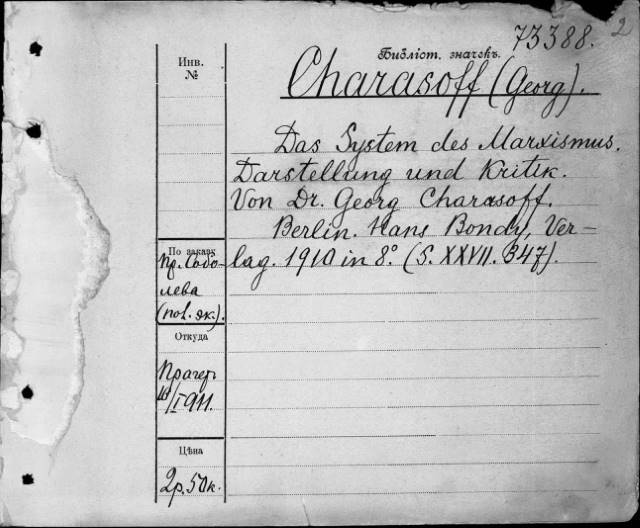 73388. 2
Библіот. значекъ.
Инв.
№
Charasoff (Georg).
Das System des Marxismus.
Darstellung und Kritik.
Von Dr. Georg Charasoff.
Berlin. Hans Bondy, Ver-
lag. 1910 in 8° (S. XXVII. 347).
По заказу
пр. Собо-
лева
(пol. эк.).
Откуда
Прагеръ
/I 1911.
Цѣна
2р.50к.